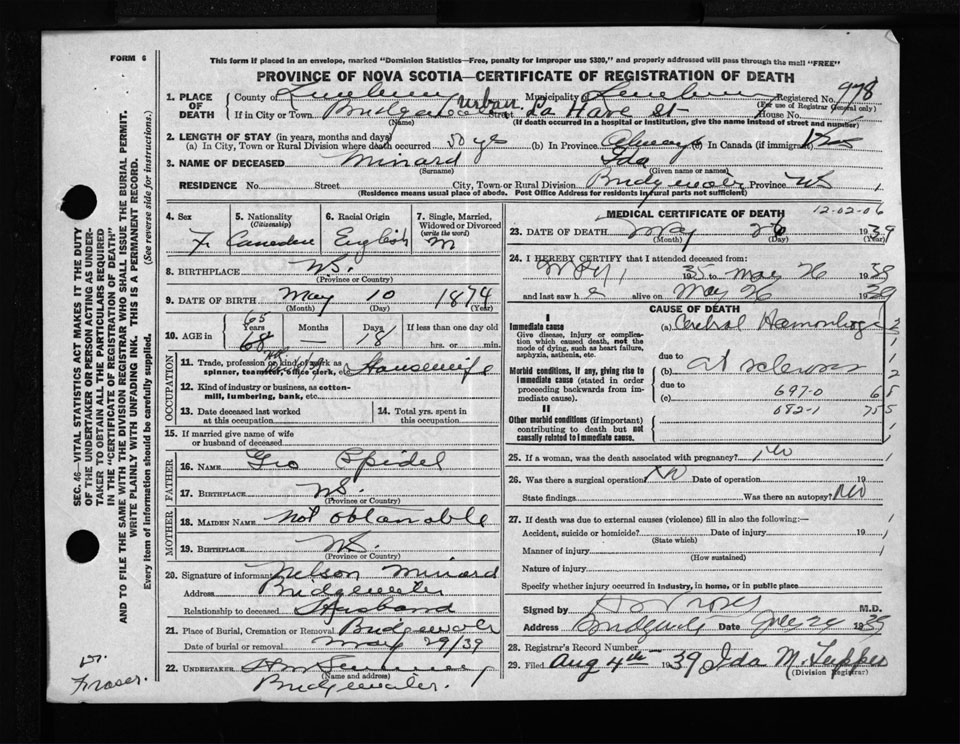 FORM 6
This form if placed in an envelope, marked "Dominion Statistics—Free, penalty for improper use $300," and properly addressed will pass through the mail "FREE"
PROVINCE OF NOVA SCOTIA—CERTIFICATE OF REGISTRATION OF DEATH
SEC. 46—VITAL STATISTICS ACT MAKES IT THE DUTY
OF THE UNDERTAKER OR PERSON ACTING AS UNDER-
TAKER TO OBTAIN ALL THE PARTICULARS REQUIRED
IN THE "CERTIFICATE OF REGISTRATION OF DEATH"
AND TO FILE THE SAME WITH THE DIVISION REGISTRAR WHO SHALL ISSUE THE BURIAL PERMIT.
WRITE PLAINLY WITH UNFADING INK. THIS IS A PERMANENT RECORD.
Every item of information should be carefully supplied. (See reverse side for instructions.)
Dr. Fraser.
1. PLACE OF DEATH County of Lunenburg Municipality Lunenburg Registered No. 978
(For use of Registrar General only)
If in City or Town Bridgewater Urban Street La Have St House No.
(Name) (If death occurred in a hospital or institution, give the name instead of street and number)
2. LENGTH OF STAY (in years, months and days)
(a) In City, Town or Rural Division where death occurred 50 yrs (b) In Province Always (c) In Canada (if immigrant)
3. NAME OF DECEASED Minard Ida
(Surname) (Given name or names)
RESIDENCE No. Street City, Town or Rural Division Bridgewater Province NS
(Residence means usual place of abode. Post Office Address for residents in rural parts not sufficient)
4. Sex F
5. Nationality (Citizenship) Canadian
6. Racial Origin English
7. Single, Married, Widowed or Divorced (write the word) M
8. BIRTHPLACE NS.
(Province or Country)
9. DATE OF BIRTH May 10 1874
(Month) (Day) (Year)
10. AGE in 65 Years 68 Months — Days 18 If less than one day old hrs. or min.
OCCUPATION
11. Trade, profession or kind of work as spinner, teamster, office clerk, etc. Housewife
12. Kind of industry or business, as cotton-mill, lumbering, bank, etc.
13. Date deceased last worked at this occupation
14. Total yrs. spent in this occupation
15. If married give name of wife or husband of deceased
FATHER
16. NAME Geo Speidel
17. BIRTHPLACE NS.
(Province or Country)
MOTHER
18. MAIDEN NAME not obtanable
19. BIRTHPLACE NS.
(Province or Country)
20. Signature of informant Nelson Minard
Address Bridgewater
Relationship to deceased Husband
21. Place of Burial, Cremation or Removal Bridgewater
Date of burial or removal May 29/39
22. UNDERTAKER
(Name and address)
Bridgewater.
MEDICAL CERTIFICATE OF DEATH 12-02-06
23. DATE OF DEATH May 26 1939
(Month) (Day) (Year)
24. I HEREBY CERTIFY that I attended deceased from:
May 1, 1935 to May 26 1939
and last saw h e alive on May 26 1939
CAUSE OF DEATH
I
Immediate cause
Give disease, injury or complication which caused death, not the mode of dying, such as heart failure, asphyxia, asthenia, etc.
(a) Cerebral Hemorrhage
due to
Morbid conditions, if any, giving rise to immediate cause (stated in order proceeding backwards from immediate cause).
(b) art sclerosis
due to
(c) 697-0 65
II
082-1 755
Other morbid conditions (if important) contributing to death but not causally related to immediate cause.
25. If a woman, was the death associated with pregnancy? No
26. Was there a surgical operation? No Date of operation 19
State findings Was there an autopsy? No
27. If death was due to external causes (violence) fill in also the following:—
Accident, suicide or homicide? Date of injury 19
(State which)
Manner of injury
(How sustained)
Nature of injury
Specify whether injury occurred in industry, in home, or in public place
Signed by M.D.
Address Bridgewater Date 1939
28. Registrar's Record Number
29. Filed Aug 4th 1939 Ida M.
(Division Registrar)